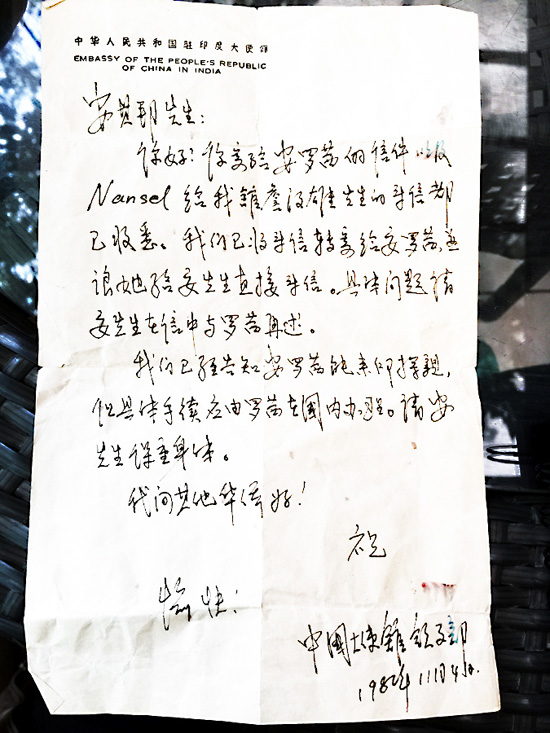 中华人民共和国驻印度大使馆
EMBASSY OF THE PEOPLE'S REPUBLIC
OF CHINA IN INDIA
安 先生：
你好！你寄给安罗茜的信件以及
Nansel 给我馆 先生的来信都
已收悉。我们已将来信转寄给安罗茜，并
让她给安先生直接来信。具体问题请
安先生在信中与罗茜再述。
我们已经告知安罗茜能来印探亲，
但具体手续应由罗茜在国内办理。请安
先生保重身体。
代问其他华侨好！
祝
愉快！
中国大使馆领事部
198 年11月4日